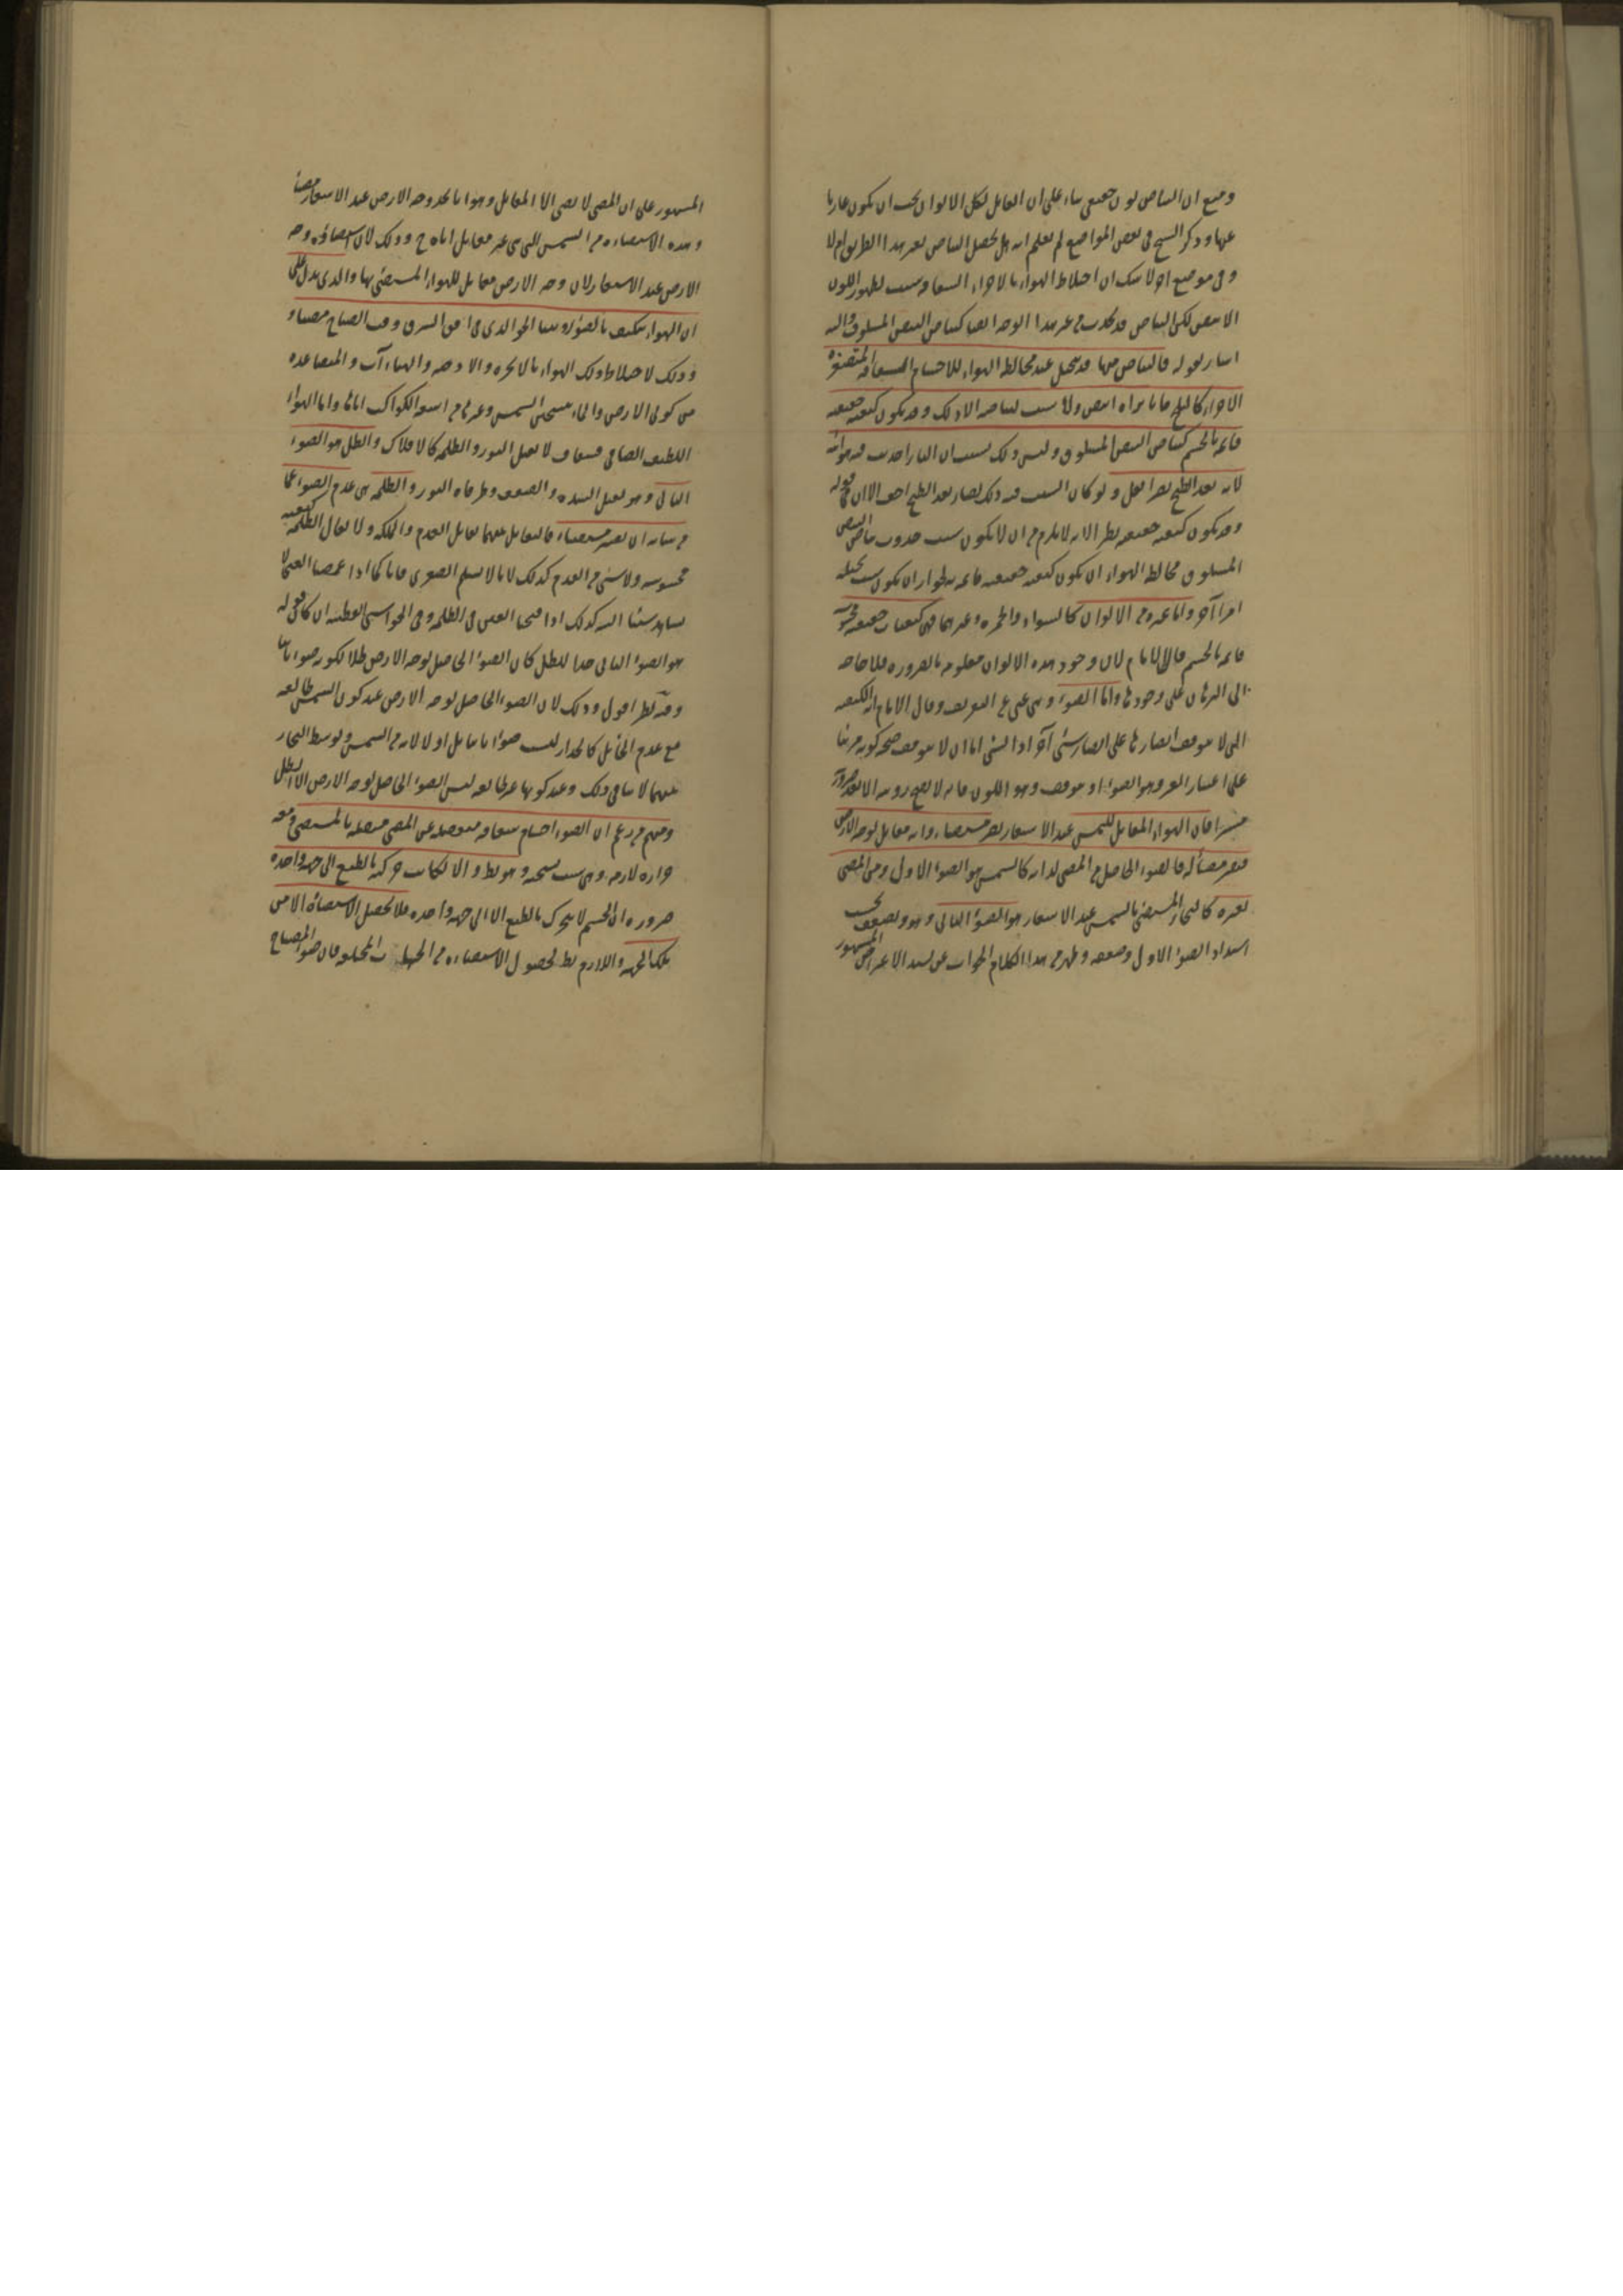 ومنع ان البياض لون حقيقي بناء على ان القابل لكل الالوان يجب ان يكون عاريا
عنها وذكر الشيخ في بعض المواضع لم نعلم انه هل يحصل البياض بغير هذا الطريق ام لا
وفي موضع اخر لا شك ان اختلاط الهواء بالاجزاء الشفافة سبب لظهور اللون
الابيض لكن البياض قد يحدث من غير هذا الوجه ايضا كبياض البيض المسلوق واليه
اشار بقوله فالبياض منها قد يتخيل عند مخالطة الهواء للاجسام الشفافة المتصغرة
الاجزاء كالثلج فانا نراه ابيض ولا سبب لبياضه الا ذلك وقد يكون كيفية حقيقية
قائمة بالجسم كبياض البيض المسلوق وليس ذلك بسبب ان النار احدثت فيه هوائية
لانه بعد الطبخ يصير اثقل ولو كان السبب فيه ذلك لصار بعد الطبخ اخف الا ان في قوله
وقد يكون كيفية حقيقية نظرا لانه لا يلزم من ان لا يكون سبب حدوث بياض البيض
المسلوق مخالطة الهواء ان يكون كيفية حقيقية قائمة به لجواز ان يكون سبب تخيله
امرا آخر واما غيره من الالوان كالسواد والحمرة وغيرهما فهي كيفيات حقيقية
قائمة بالجسم قال الامام لان وجود هذه الالوان معلومة بالضرورة فلا حاجة
الى البرهان على وجودها واما الضوء وهي غني عن التعريف وقال الامام انه الكيفية
التي لا يتوقف ابصارها على ابصار شيء آخر اذ الشيء اما ان لا يتوقف صحة كونه مرئيا
على اعتبار الغير وهو الضوء او يتوقف وهو اللون فانه لا يصح رؤيته الا بعد صيرورته
مستنيرا فان الهواء المقابل للشمس عند الاسفار يصير مستضيئا وانه مقابل لوجه الارض
فيصير مضيئا له فالضوء الحاصل من المضيء لذاته كالشمس هو الضوء الاول ومن المضيء
لغيره كالبخار المستضيء بالشمس عند الاسفار هو الضوء الثاني وهو يضعف بحسب
اشتداد الضوء الاول وضعفه وظهر من هذا الكلام الجواب عن الاعتراض المشهور
المشهور على ان المضيء لا يضيء الا المقابل وهو انا نجد وجه الارض عند الاسفار مضيئا
وهذه الاستضاءة من الشمس التي هي غير مقابل اياه ح وذلك لان استضاءة وجه
الارض عند الاسفار لان وجه الارض مقابل للهواء المستضيء بها والذي يدل على
ان الهواء يتكيف بالضوء رؤيتنا الجو الذي في افق الشرق وقت الصباح مضيئا و
وذلك لاختلاط ذلك الهواء بالابخرة والادخنة والهباءات المتصاعدة
من كرتي الارض والماء بتسخين الشمس وغيرها من اشعة الكواكب اياها واما الهواء
اللطيف الصافي فشفاف لا يقبل النور والظلمة كالافلاك والظل هو الضوء
الثاني وهو يقبل الشدة والضعف وطرفاه النور والظلمة هي عدم الضوء عما
من شانه ان يصير مستضيئا فالتقابل بينهما تقابل العدم والملكة ولا يقال الظلمة كيفية
محسوسة ولا شيء من العدم كذلك لانا لا نسلم الصغرى فانا كما اذا غمضنا العين لا
نشاهد شيئا البتة كذلك اذا فتحنا العين في الظلمة وفي الحواشي القطبية ان كان قوله
هو الضوء الثاني حدا للظل كان الضوء الحاصل لوجه الارض ظلا لكونه ضوءا ثانيا
وفيه نظر اقول وذلك لان الضوء الحاصل لوجه الارض عند كون الشمس طالعة
مع عدم الحائل كالجدار ليس ضوءا ثانيا بل اولا لانه من الشمس وتوسط البخار
بينهما لا ينافي ذلك وعند كونها غير طالعة ليس الضوء الحاصل لوجه الارض الا الظل
ومنهم من زعم ان الضوء اجسام شفافة منفصلة عن المضيء متصلة بالمستضيء ومعه
حرارة لازمة وهي سبب لتسخنه وهو بط والا لكانت حركته بالطبع الى جهة واحدة
ضرورة ان الجسم لا يتحرك بالطبع الا الى جهة واحدة فلا تحصل الاستضاءة الا من
تلك الجهة واللازم بط لحصول الاستضاءة من الجهات المختلفة فان ضوء المصباح